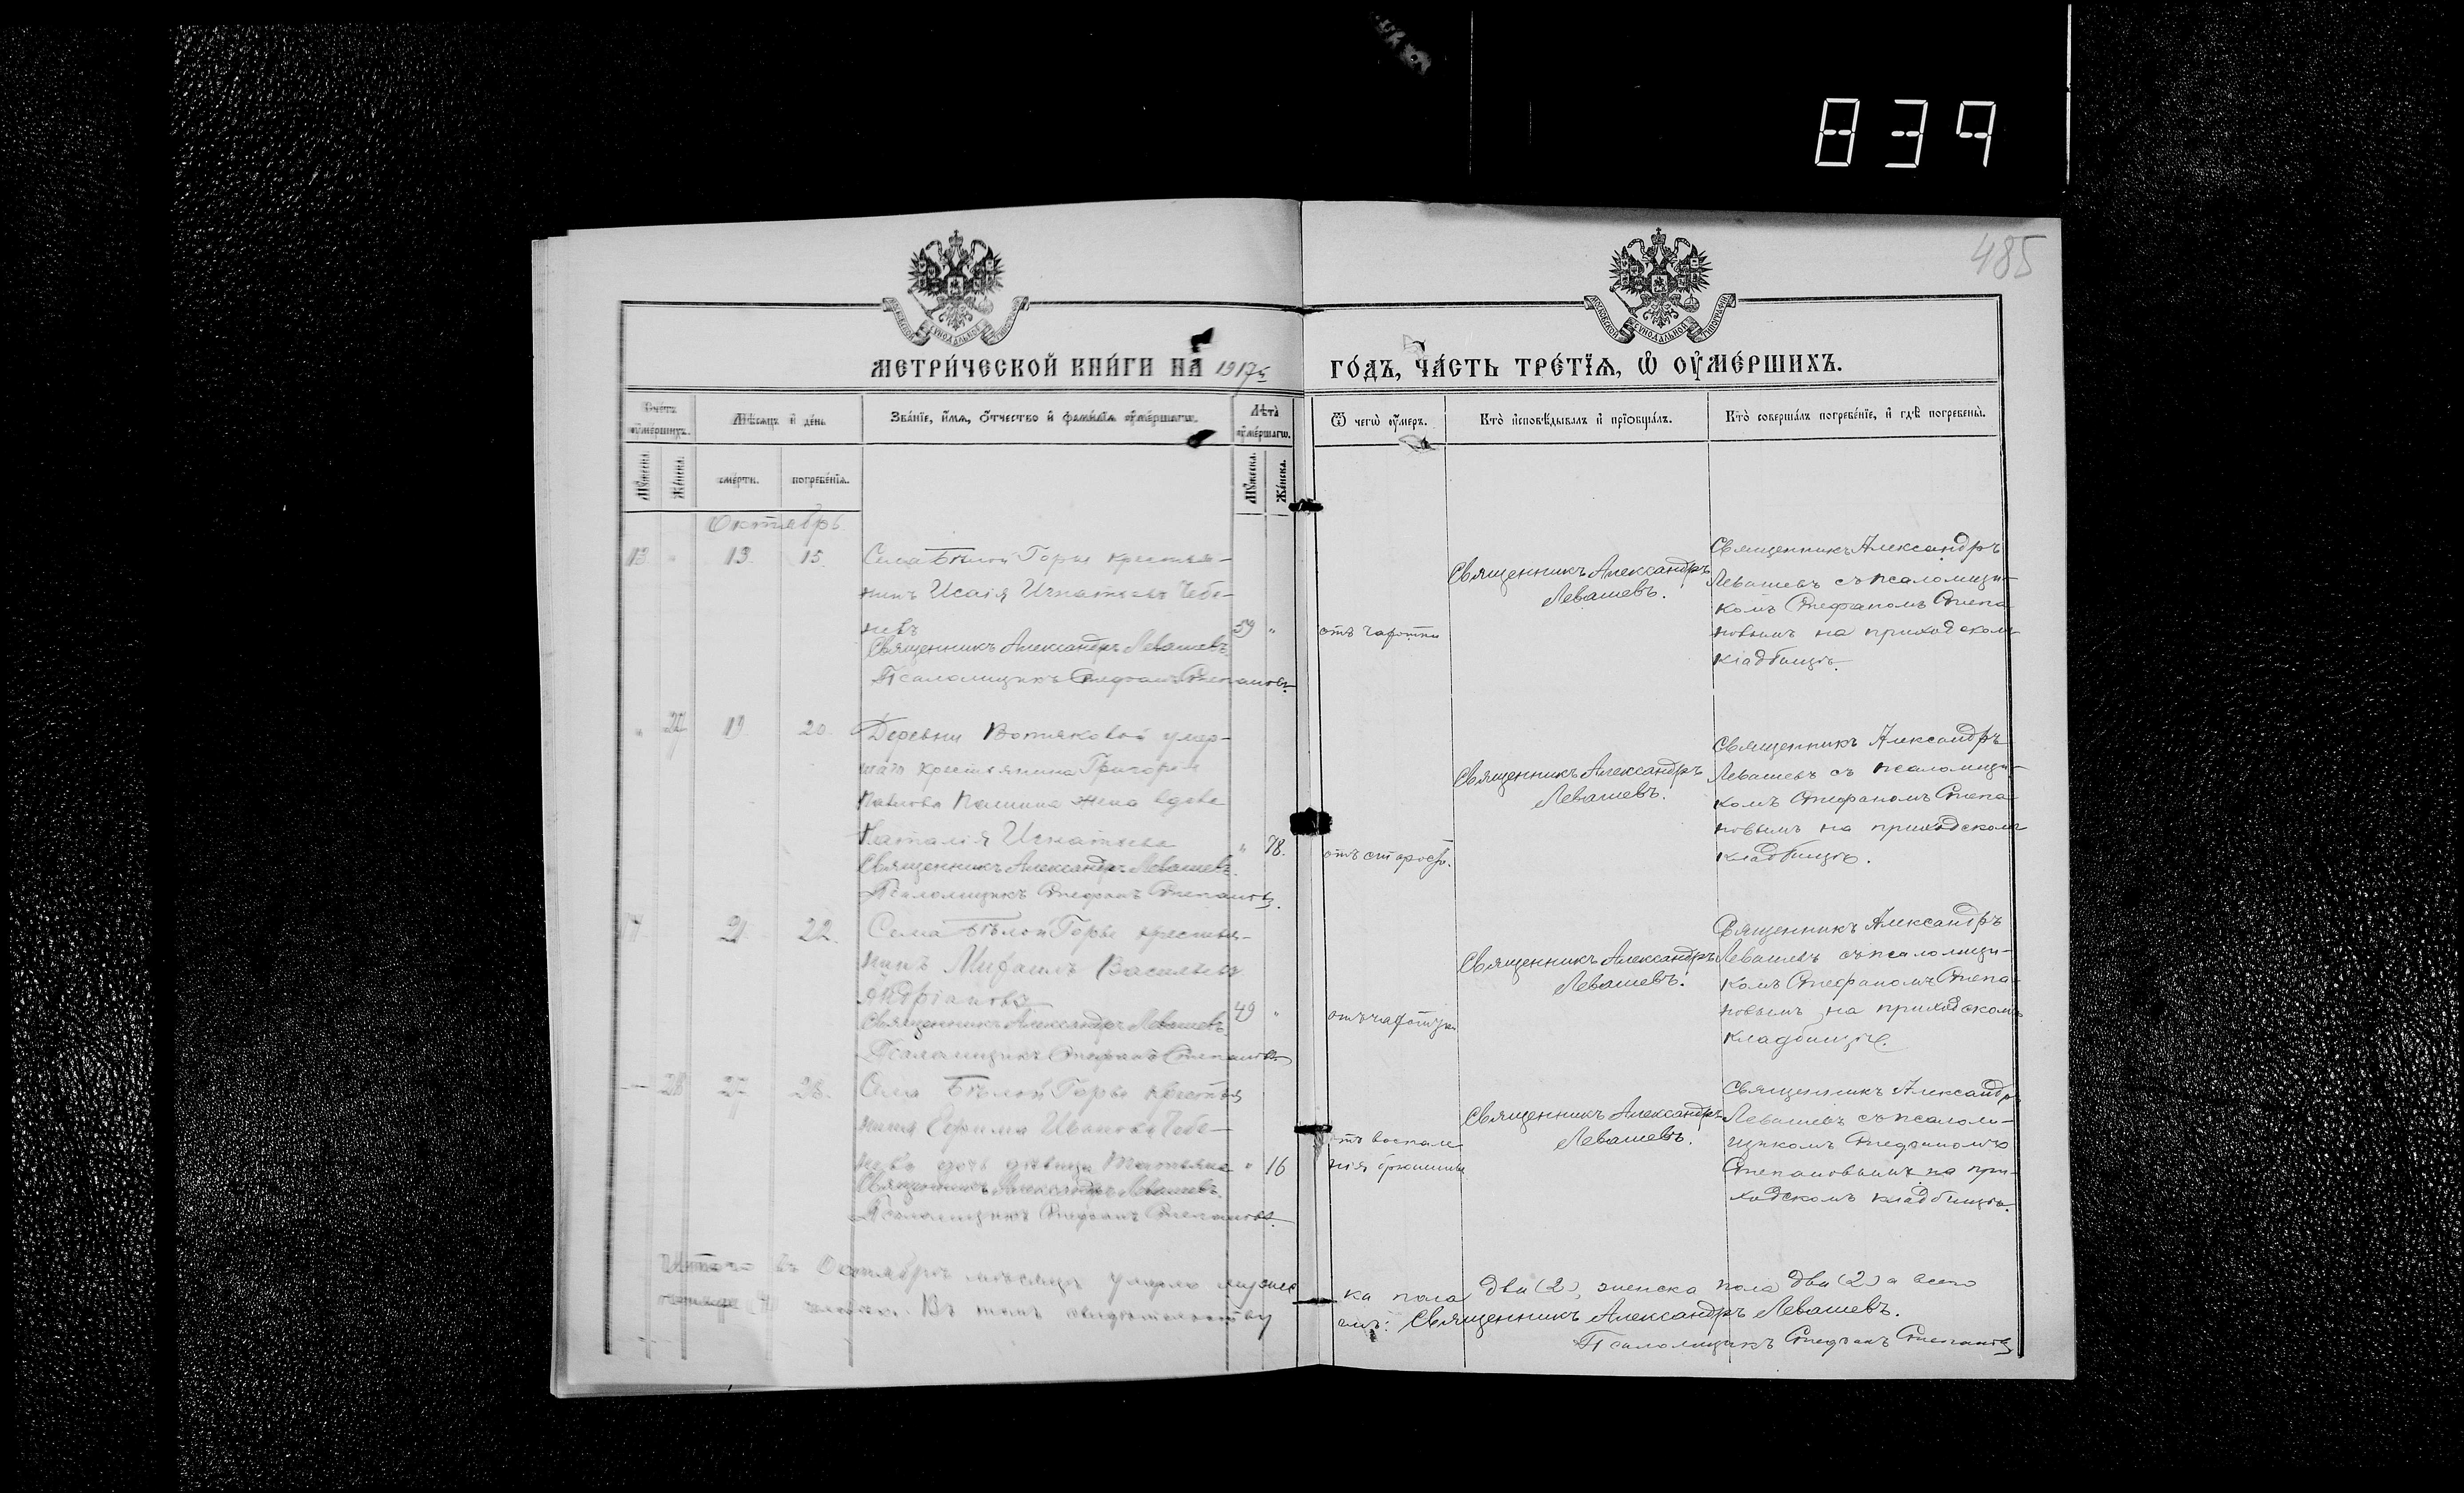 839
485
МОСКОВСКОЙ СѴНОДАЛЬНОЙ ТИПОГРАФІИ
МОСКОВСКОЙ СѴНОДАЛЬНОЙ ТИПОГРАФІИ
МЕТРИ́ЧЕСКОЙ КНИ́ГИ НА̀ 1917й ГО́ДЪ, ЧА́СТЬ ТРЕ́ТЇѦ, Ѡ҆ ОУ҆МЕ́РШИХЪ.
Счетъ оумершихъ.
Мѣсяцъ и день
Зва́нїе, и҆́мѧ, ѻ҆́тчество и҆ фамилїѧ оу҆ме́ршагѡ.
Лѣта̀ оу҆ме́ршагѡ.
Ѿ чегѡ̀ оу҆́меръ.
Кто̀ и҆сповѣ́дывалъ и҆ прїѡбща́лъ.
Кто̀ соверша́лъ погребе́нїе, и҆ гдѣ̀ погребены̀.
Мужеска.
Женска.
смерти.
погребенїѧ.
Мужеска.
Женска.
Октябрь
13 " 13. 15.
Села Бѣлой Горы крестья-
нинъ Исаія Игнатьевъ Чебе-
невъ
59 "
Священникъ Александръ Левашевъ.
Псаломщикъ Стефанъ Степановъ
отъ чахотки
Священникъ Александръ
Левашевъ.
Священникъ Александръ
Левашевъ съ псаломщи-
комъ Стефаномъ Степа-
новымъ на приходскомъ
кладбищѣ.
" 27 19. 20.
Деревни Вотяковой умер-
шаго крестьянина Григорія
Павлова жена вдова
Наталія Игнатьева
" 78.
Священникъ Александръ Левашевъ.
Псаломщикъ Стефанъ Степановъ.
отъ старости.
Священникъ Александръ
Левашевъ.
Священникъ Александръ
Левашевъ съ псаломщи-
комъ Стефаномъ Степа-
новымъ на приходскомъ
кладбищѣ.
14 21. 22.
Села Бѣлой Горы крестья-
нинъ Михаилъ Васильевъ
Андріановъ
49 "
Священникъ Александръ Левашевъ
Псаломщикъ Стефанъ Степановъ
отъ чахотки
Священникъ Александръ
Левашевъ.
Священникъ Александръ
Левашевъ съ псаломщи-
комъ Стефаномъ Степа-
новымъ на приходскомъ
кладбищѣ.
— 28 27 28.
Села Бѣлой Горы крестья
нина Ефима Иванова Чебе-
нева дочь дѣвица Татьяна " 16
Священникъ Александръ Левашевъ.
Псаломщикъ Стефанъ Степановъ.
отъ воспале
нія брюшины
Священникъ Александръ
Левашевъ.
Священникъ Александръ
Левашевъ съ псалом-
щикомъ Стефаномъ
Степановымъ на при-
ходскомъ кладбищѣ.
Итого въ Октябрѣ мѣсяцѣ умерло мужес
ка пола два (2), женска пола два (2) а всего
четыре (4) человѣка. Въ томъ свидѣтельству
емъ: Священникъ Александръ Левашевъ.
Псаломщикъ Стефанъ Степановъ